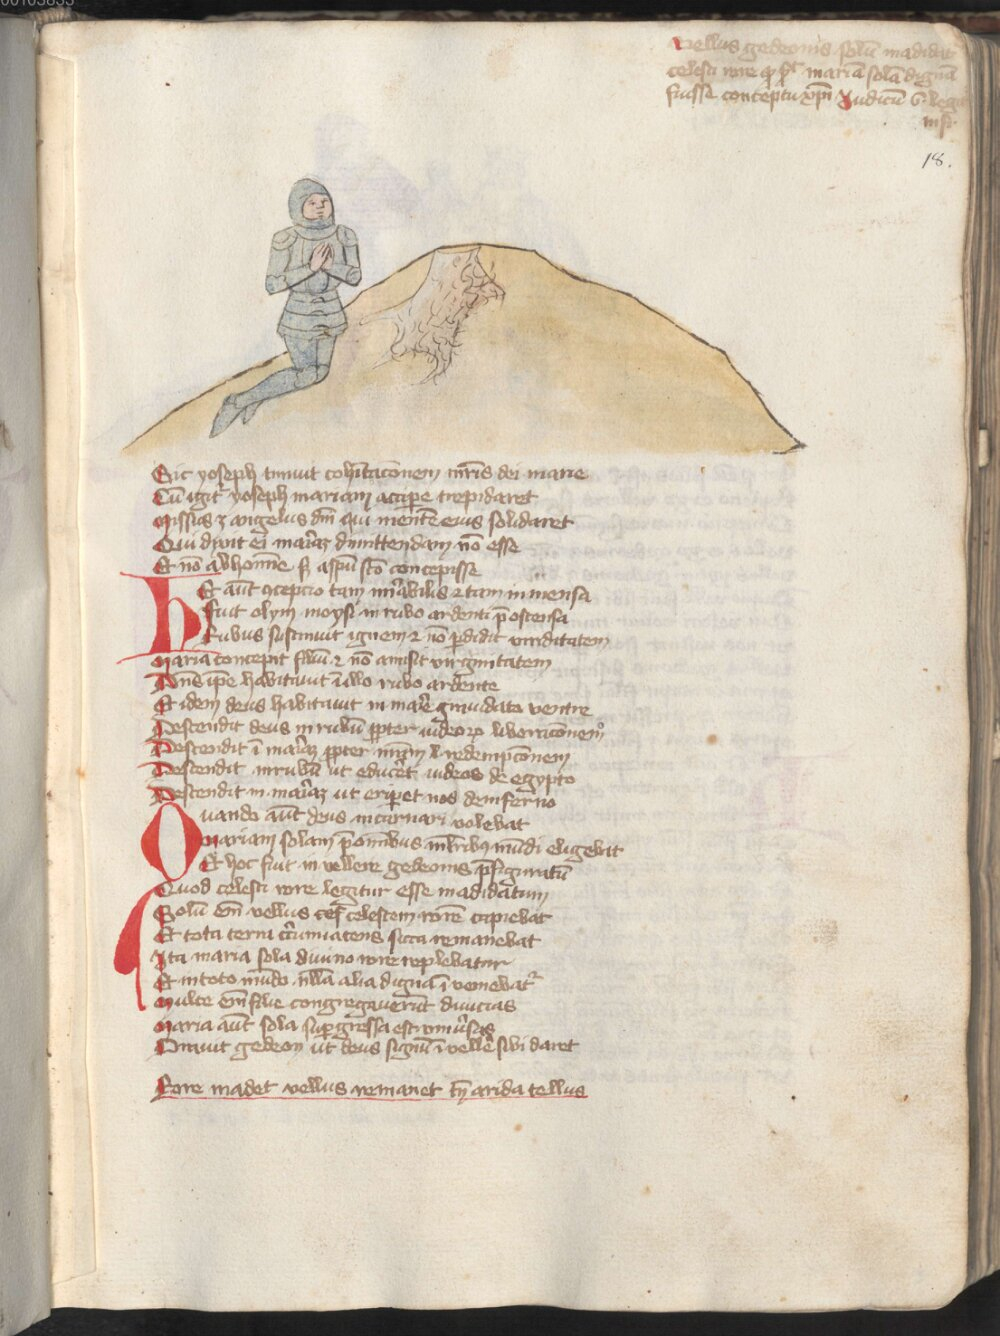 00103833
Vellus gedeonis solū madidat
celesti rore mariā solā dignā
fuisse conceptu xp̄i Judicū 6 legit
18.
Sic yoseph timuit cohītacōnem mr̄is dei marie
Cū igit᷑ yoseph mariam accip̄e trepidaret
Missus ē angelus dn̄i qui mentē eius solidaret
Qui dixit ei mariā dimittendam nō esse
Et nō ab homīe sʒ a spū scō concepisse
Hec aūt ɔcepcio tam mirabilis et tam immensa
Fuit olym moysi in rubo ardenti p̄ostensa
Rubus sustinuit ignem et nō p̄didit viriditatem
Maria concepit filiū et nō amisit virginitatem
Dn̄s ip̄e habitauit ī illo rubo ardente
Et idem deus habitauit in mar̄e grauidata ventre
Descendit deus in rubū ꝓpter iudeoꝝ liberacōnem
Descendit ī mariā ꝓpter nr̄am redempcōnem
Descendit in rubū ut educeret iudeos de egypto
Descendit in mariā ut eriperet nos de inferno
Quando aūt deus incarnari volebat
Mariam solam p̄ omībus ml̄ribꝰ mūdi eligebat
Et hoc fuit in vellere gedeonis p̄figuratū
Quod celesti rore legitur esse madidatum
Solū em̄ vellus celestem rorē capiebat
Et tota terra circumiacens sicca remanebat
Ita maria sola diuino rore replebatur
Et in toto mūdo nlla alia digna īueniebat᷑
Multe em̄ filie congregauerūt diuicias
Maria aūt sola supergressa est vniūsas
Orauit gedeon ut deus signū ī velle᷑ sibi daret
Rore madet vellus remanet tn̄ arida tellus